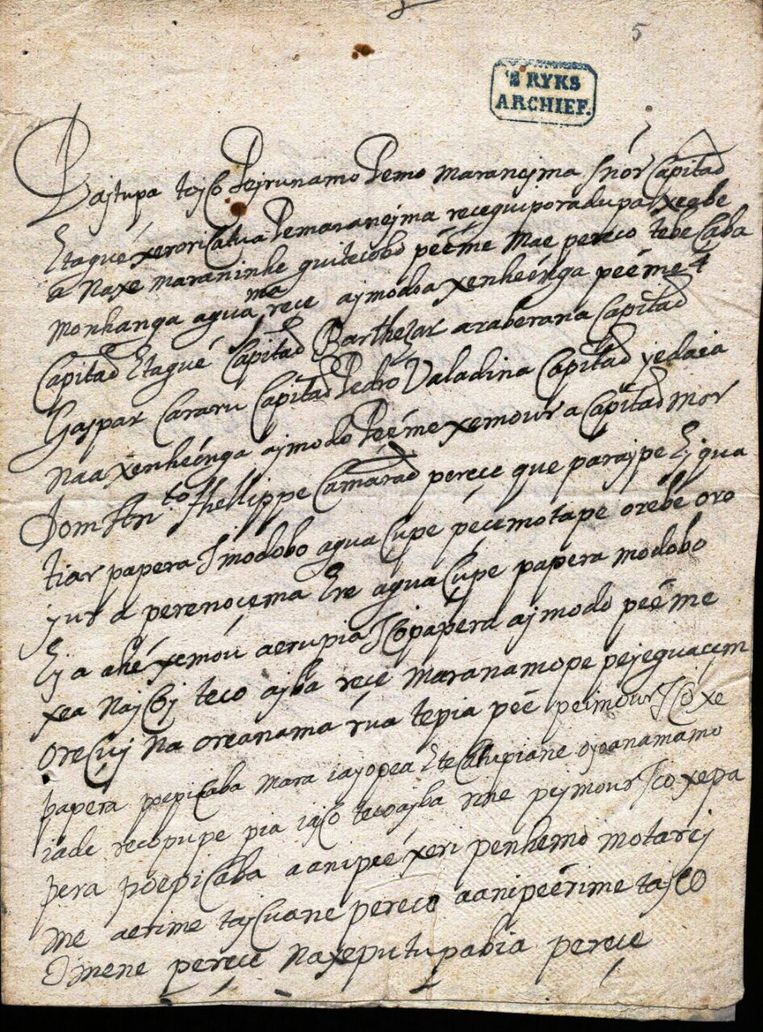 5
'S RYKS
ARCHIEF.
Pajtupa tejco Pejrunamo Pemo maranejma Snor Capitaõ
Etagué xerori Catua Pemaranejma receguiporadupat xeabe
a Naxe maraninhe guitecobo péẽme Mae pereco tebe Caba
Monhanga agua ma rece ajmodoa xenheénga peéme
Capitaõ Etagué Capitaõ Barthezar araberana Capitaõ
Gaspar Cararu Capitaõ Pedro Valadina Capitaõ yedaia
Naa xenheénga ajmodo Peéme xemour a Capitaõ Mor
Dom Antto Phellippe Camaraõ perece que parajpe Ej qua
tiar papera Jmodobo agua Cupe pécemotape orébe oro
jur a perenoçema Ere agua Cupe papera modobo
Ej a ahé xemoú aerupia Jcopapera ajmodo peéme
xea Najcoj teco ajba reçe maranamope pejeguacem
oreCuj Na oreanama rúa tepia peé peimour Jco xe
papera poepicaba mara iajopea Ete Catupiane ojoanamamo
iade recopupe pia iajco tecoajba Nne pejmour Jco xepa
pera poepicaba aanipeé xeri penhemo motarej
me aerime tajcuane pereco aanipeérime tajco
Omene pereçe Naxeputupabia pereçe